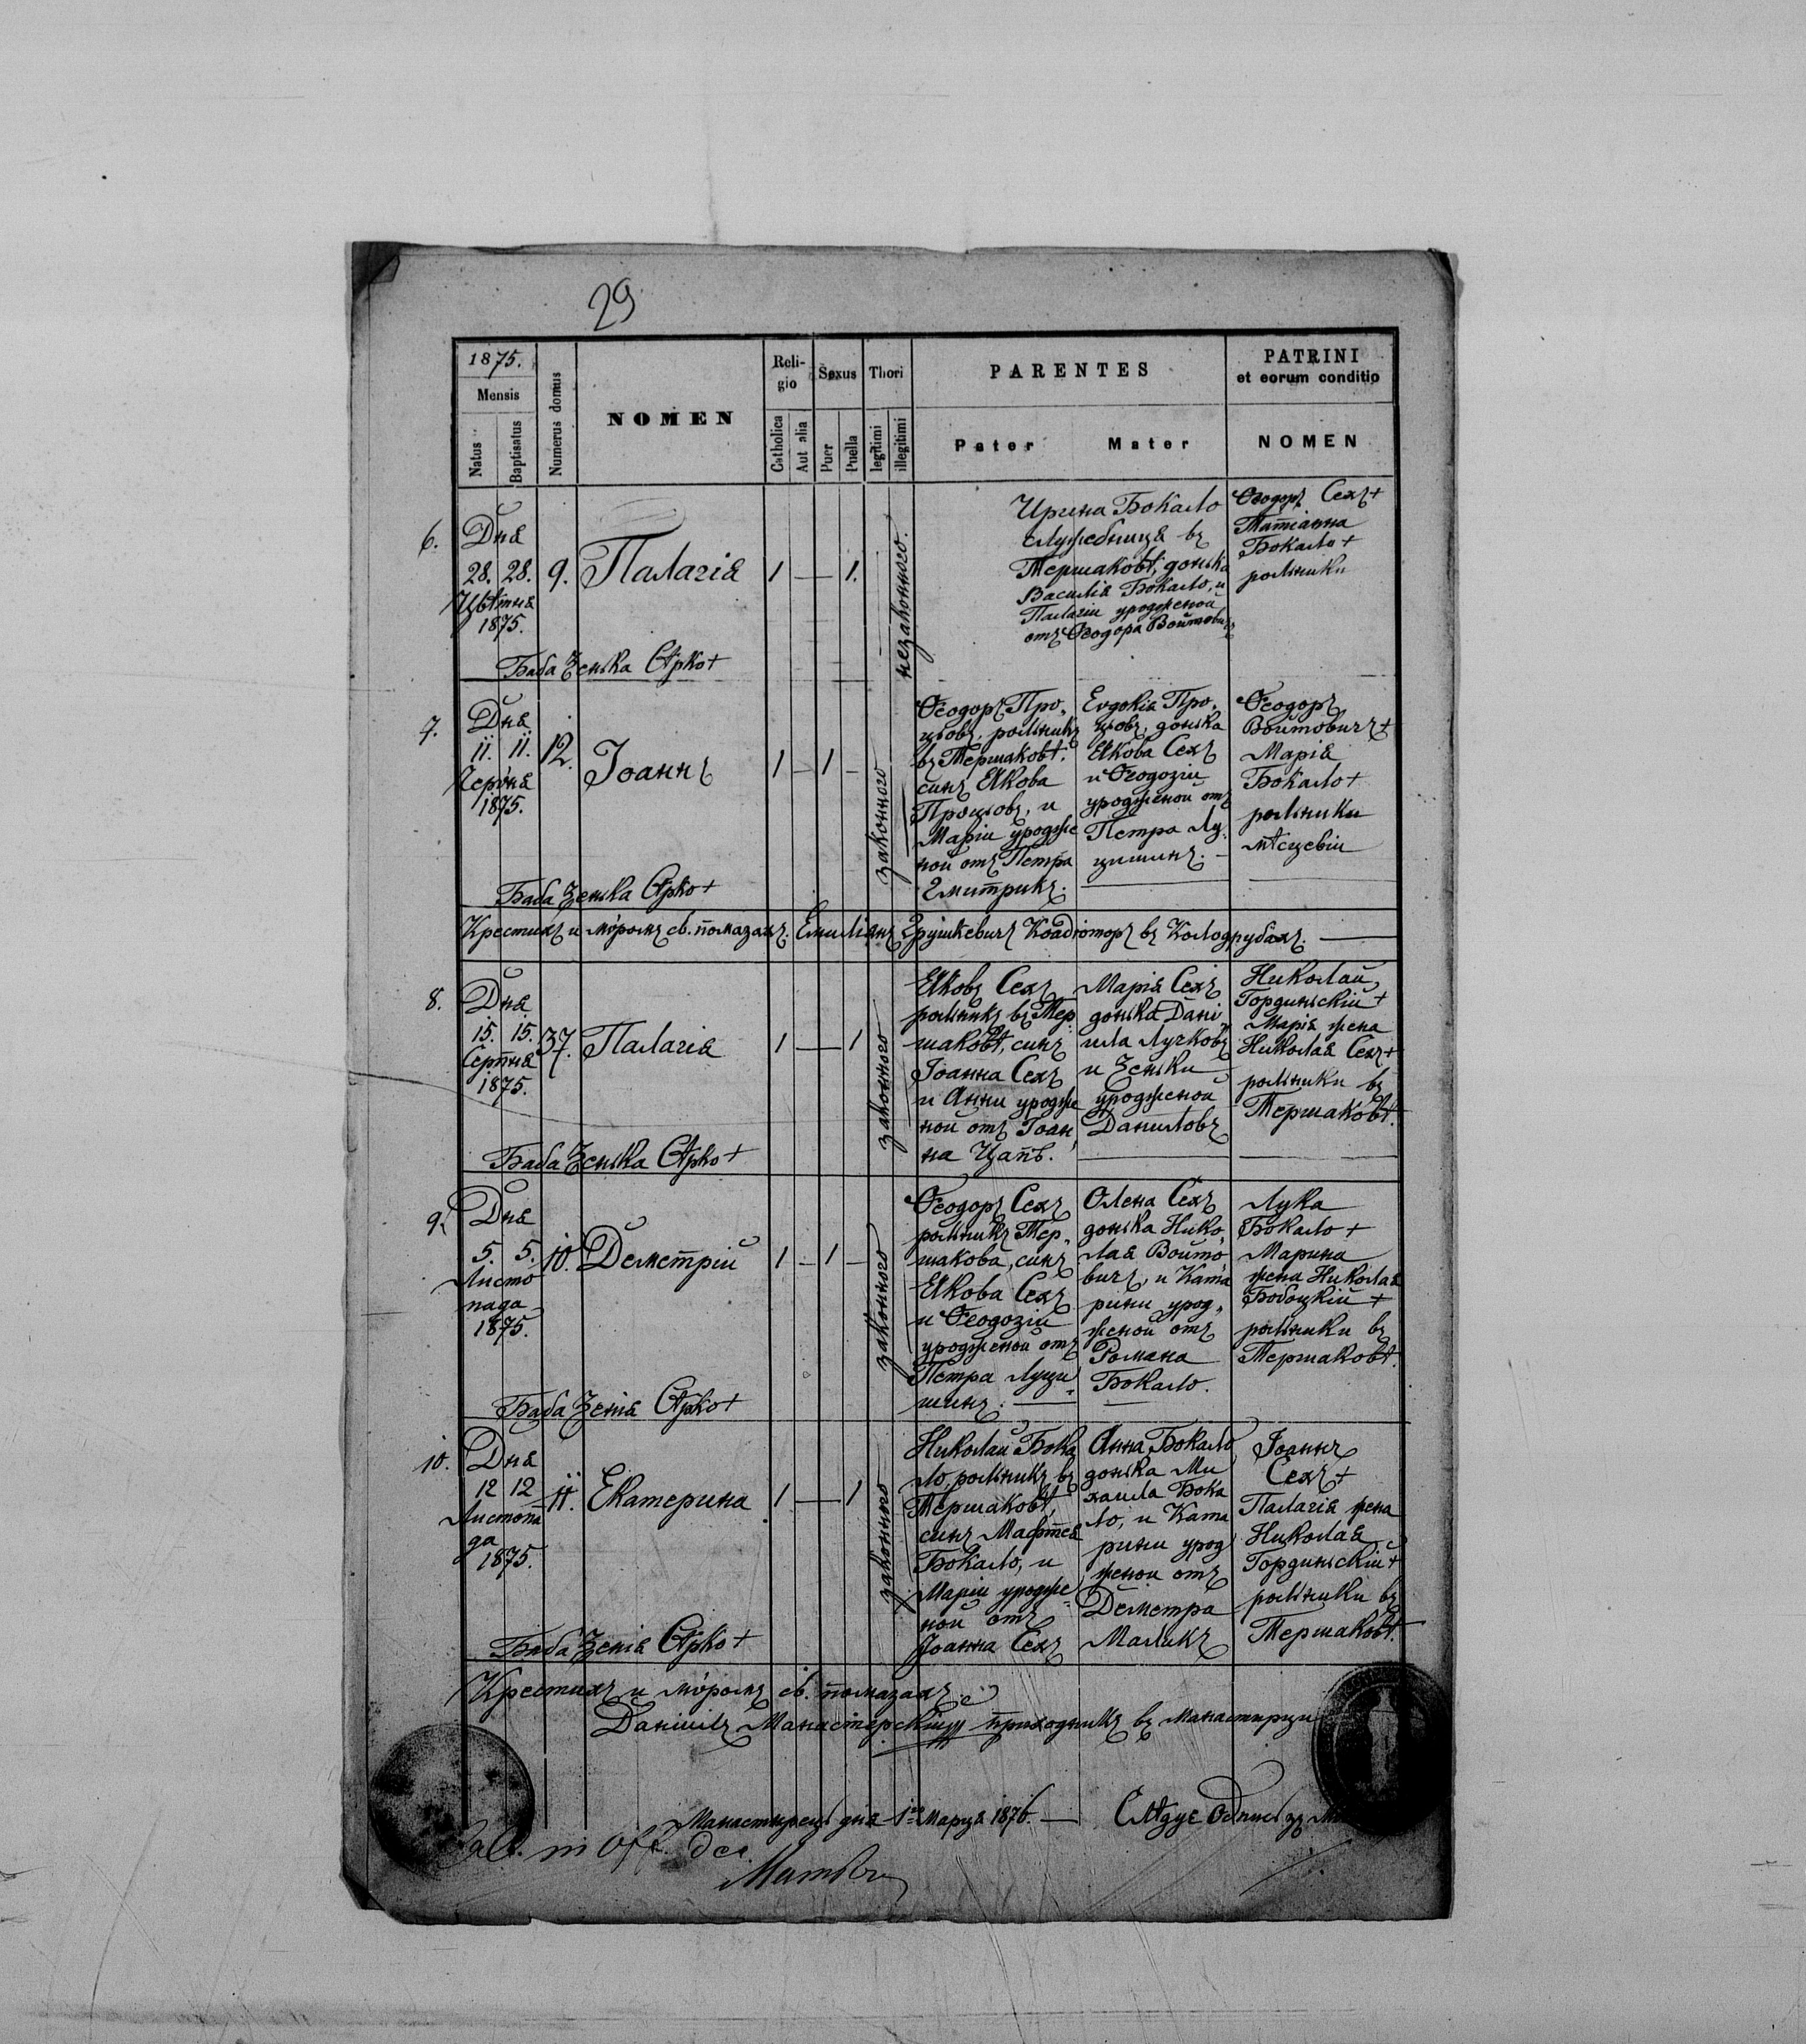 29
1875.
Mensis
Natus
Baptisatus
Numerus domus
NOMEN
Reli-
gio
Catholica
Aut alia
Sexus
Puer
Puella
Thori
legitimi
illegitimi
PARENTES
Pater
Mater
PATRINI
et eorum conditio
NOMEN
6.
Дня
28. 28.
Цвѣтня
1875.
9.
Палагія
1 — 1.
незаконного.
Ирина Бокало
служебниця въ
Тершаковѣ, донька
Василія Бокало, и
Палагіи уродженой
отъ Ѳеодора Войтовичъ
Ѳеодоръ Сехъ +
Татіанна
Бокало +
рольники
Баба Зенька Сѣрко +
7.
Дня
11. 11.
Червня
1875.
12.
Іоаннъ
1 — 1 —
законного
Ѳеодоръ Про„
цѣовъ, рольникъ
въ Тершаковѣ.
синъ Якова
Процѣовъ, и
Маріи уродже
ной отъ Петра
Дмитрикъ.
Евдокія Про„
цѣовъ, донька
Якова Сехъ
и Ѳеодозіи
уродженой отъ
Петра Лу„
цишинъ. —
Ѳеодоръ
Войтовичъ +
Марія
Бокало +
рольники
мѣсцевіи
Баба Зенька Сѣрко +
Крестихъ и мѵромъ св. помазахъ. Емиліянъ Грушкевичъ Коадіюторъ въ Колодрубахъ. —
8.
Дня
15. 15.
Серпня
1875.
37.
Палагія
1 — 1
законного
Яковъ Сехъ
рольникъ въ Тер
шаковѣ, синъ
Іоанна Сехъ
и Анни уродже
ной отъ Іоан„
на Цапъ.
Марія Сехъ
донька Дані
ила Лучковъ
и Зеньки
уродженой
Даниловъ
Николай
Гординьскій +
Марія жена
Николая Сехъ +
рольники въ
Тершаковѣ.
Баба Зенька Сѣрко +
9.
Дня
5. 5.
Листо
пада
1875.
10.
Деметрій
1 — 1 —
законного
Ѳеодоръ Сехъ
рольникъ Тер„
шакова, синъ
Якова Сехъ
и Ѳеодозіи
уродженой отъ
Петра Луци
шинъ. —
Олена Сехъ
донька Нико„
лая Войто
вичъ, и Ката
рини урод„
женой отъ
Романа
Бокало.
Лука
Бокало +
Марина
жена Николая
Бобоцкій +
рольники въ
Тершаковѣ.
Баба Зенія Сѣрко +
10.
Дня
12 12
Листопа
да
1875.
11.
Екатерина
1 — 1
законного
Николай Бока
ло, рольникъ въ
Тершаковѣ,
синъ Мафтея
Бокало, и
Маріи уродже„
ной отъ
Іоанна Сехъ
Анна Бокало
донька Ми
хаила Бока
ло, и Ката
рини урод
женой отъ
Деметра
Маликъ
Іоаннъ
Сехъ +
Палагія жена
Николая
Гординьскій +
рольники въ
Тершаковѣ.
Баба Зенія Сѣрко +
Крестихъ и мѵромъ св. помазахъ
Даніилъ Манастерскій приходникъ въ Манастирци
Манастирецъ дня 1го Марця 1876. —
in Off. dec.